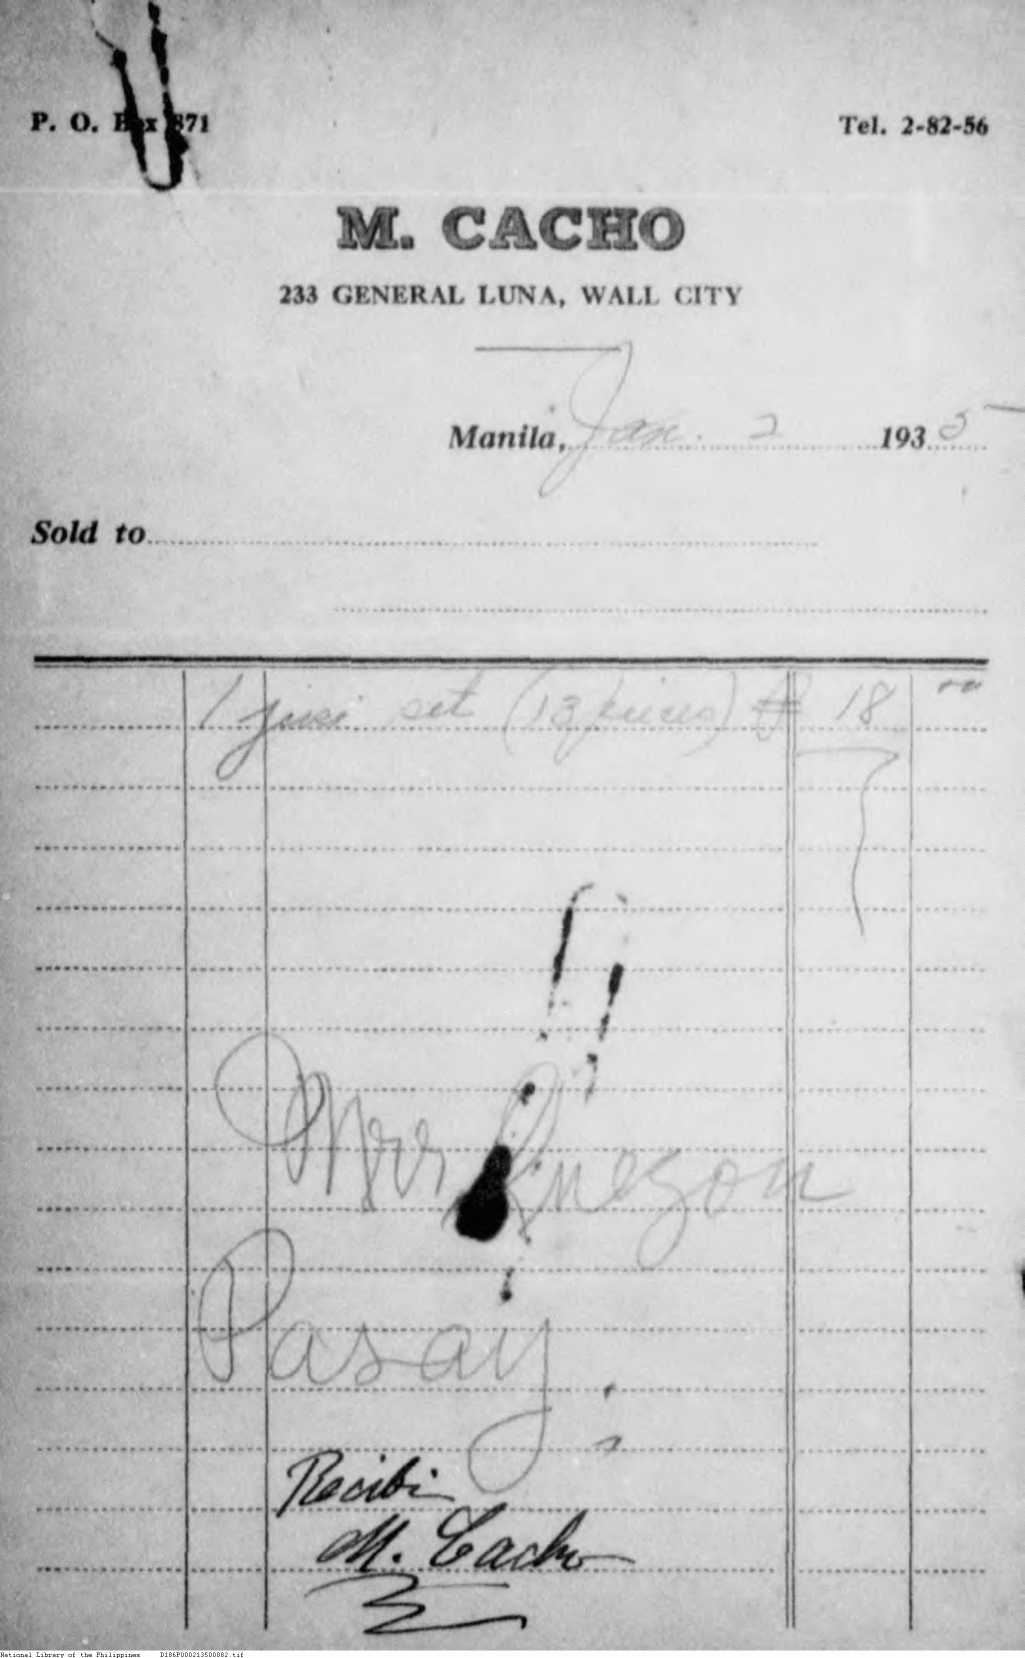 P. O. Box 871
Tel. 2-82-56
M. CACHO
233 GENERAL LUNA, WALL CITY
Manila, Jan. 2 1935
Sold to
1 jusi set (13 pieces) ₱ 18 00
Mrs Quezon
Pasay
Recibi
M. Cacho
National Library of the Philippines D186P000213500082.tif